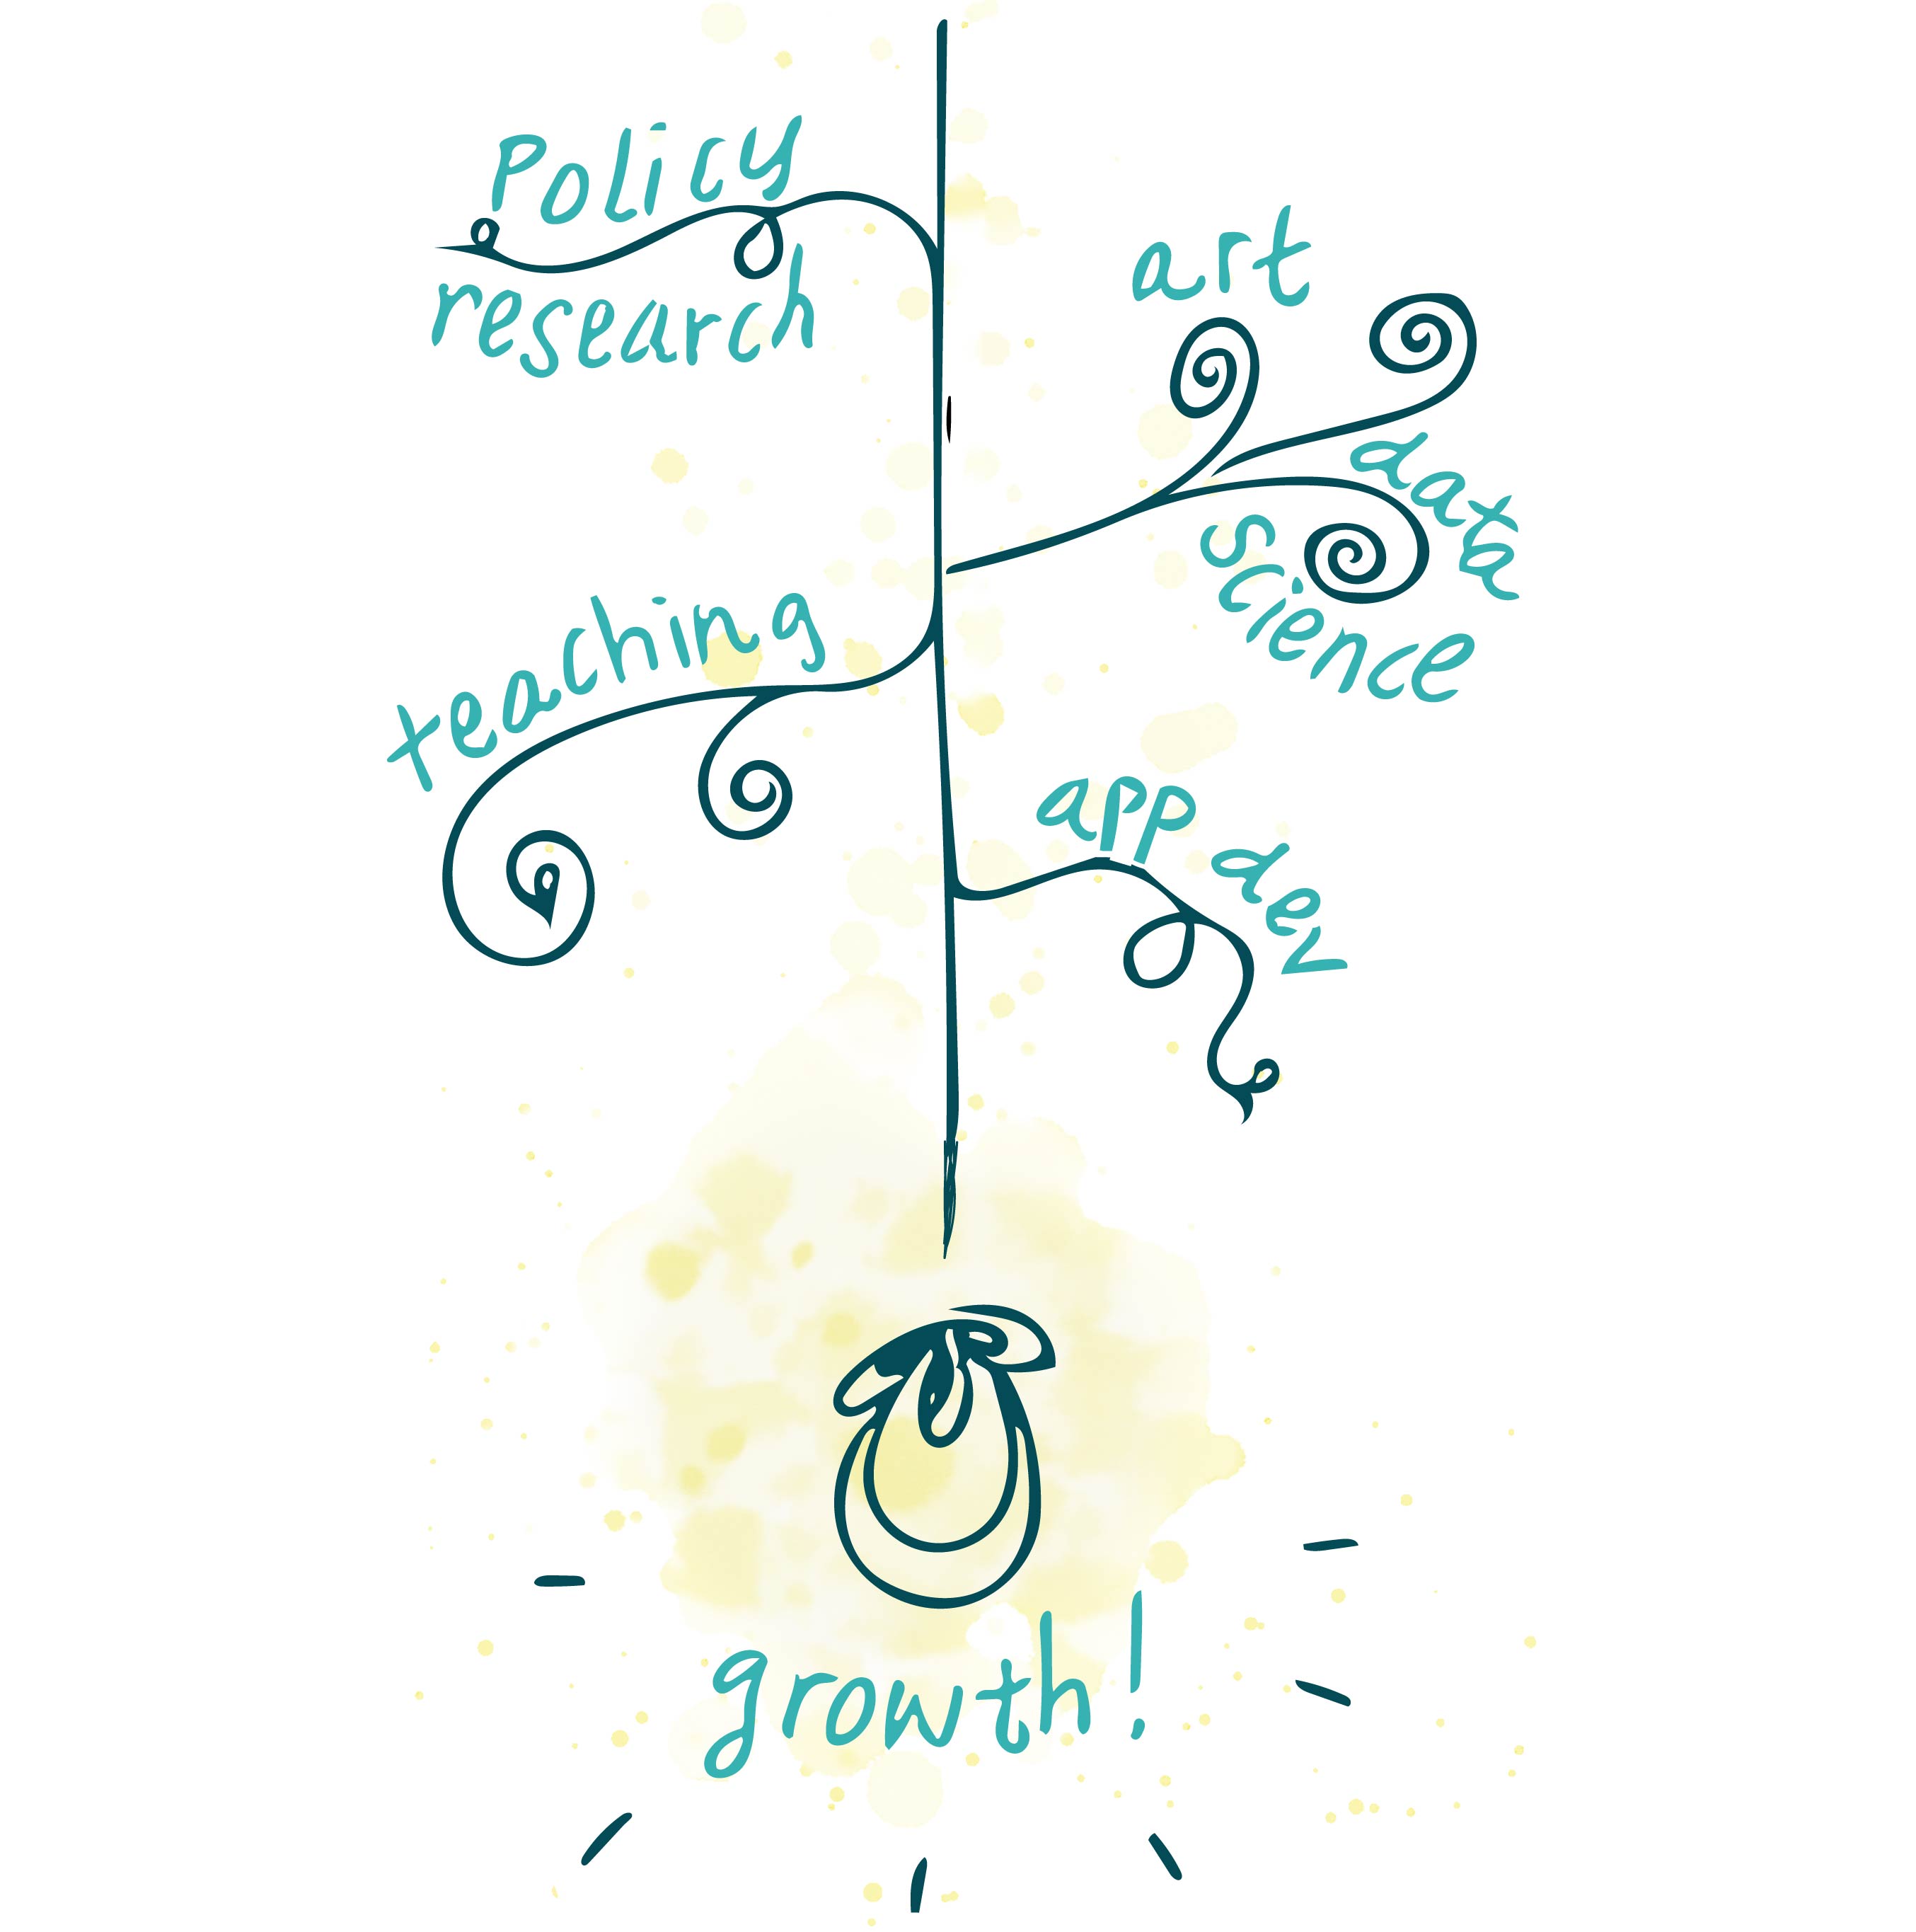 Policy
research
art
data
science
teaching
app dev
growth!